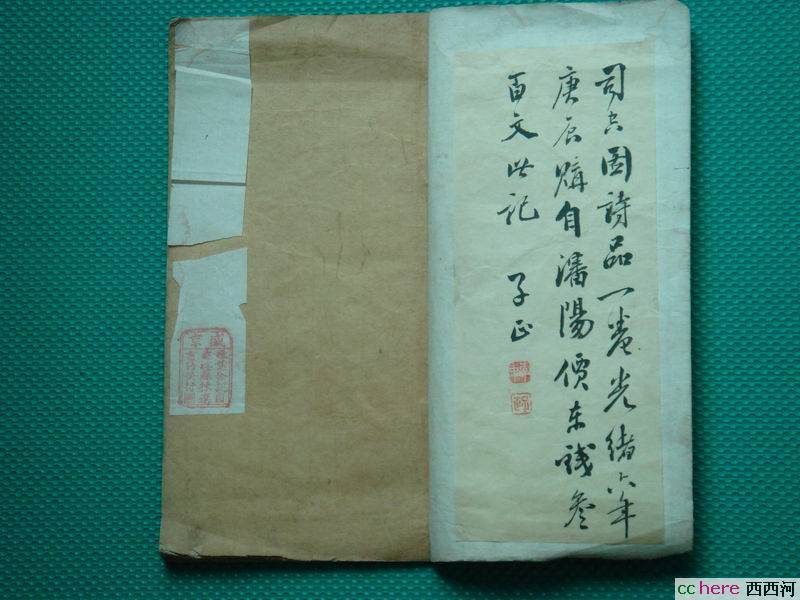 司空圖詩品一卷光緒六年
庚辰購自瀋陽價東錢叁
百文此記 子正
盛京
cchere 西西河